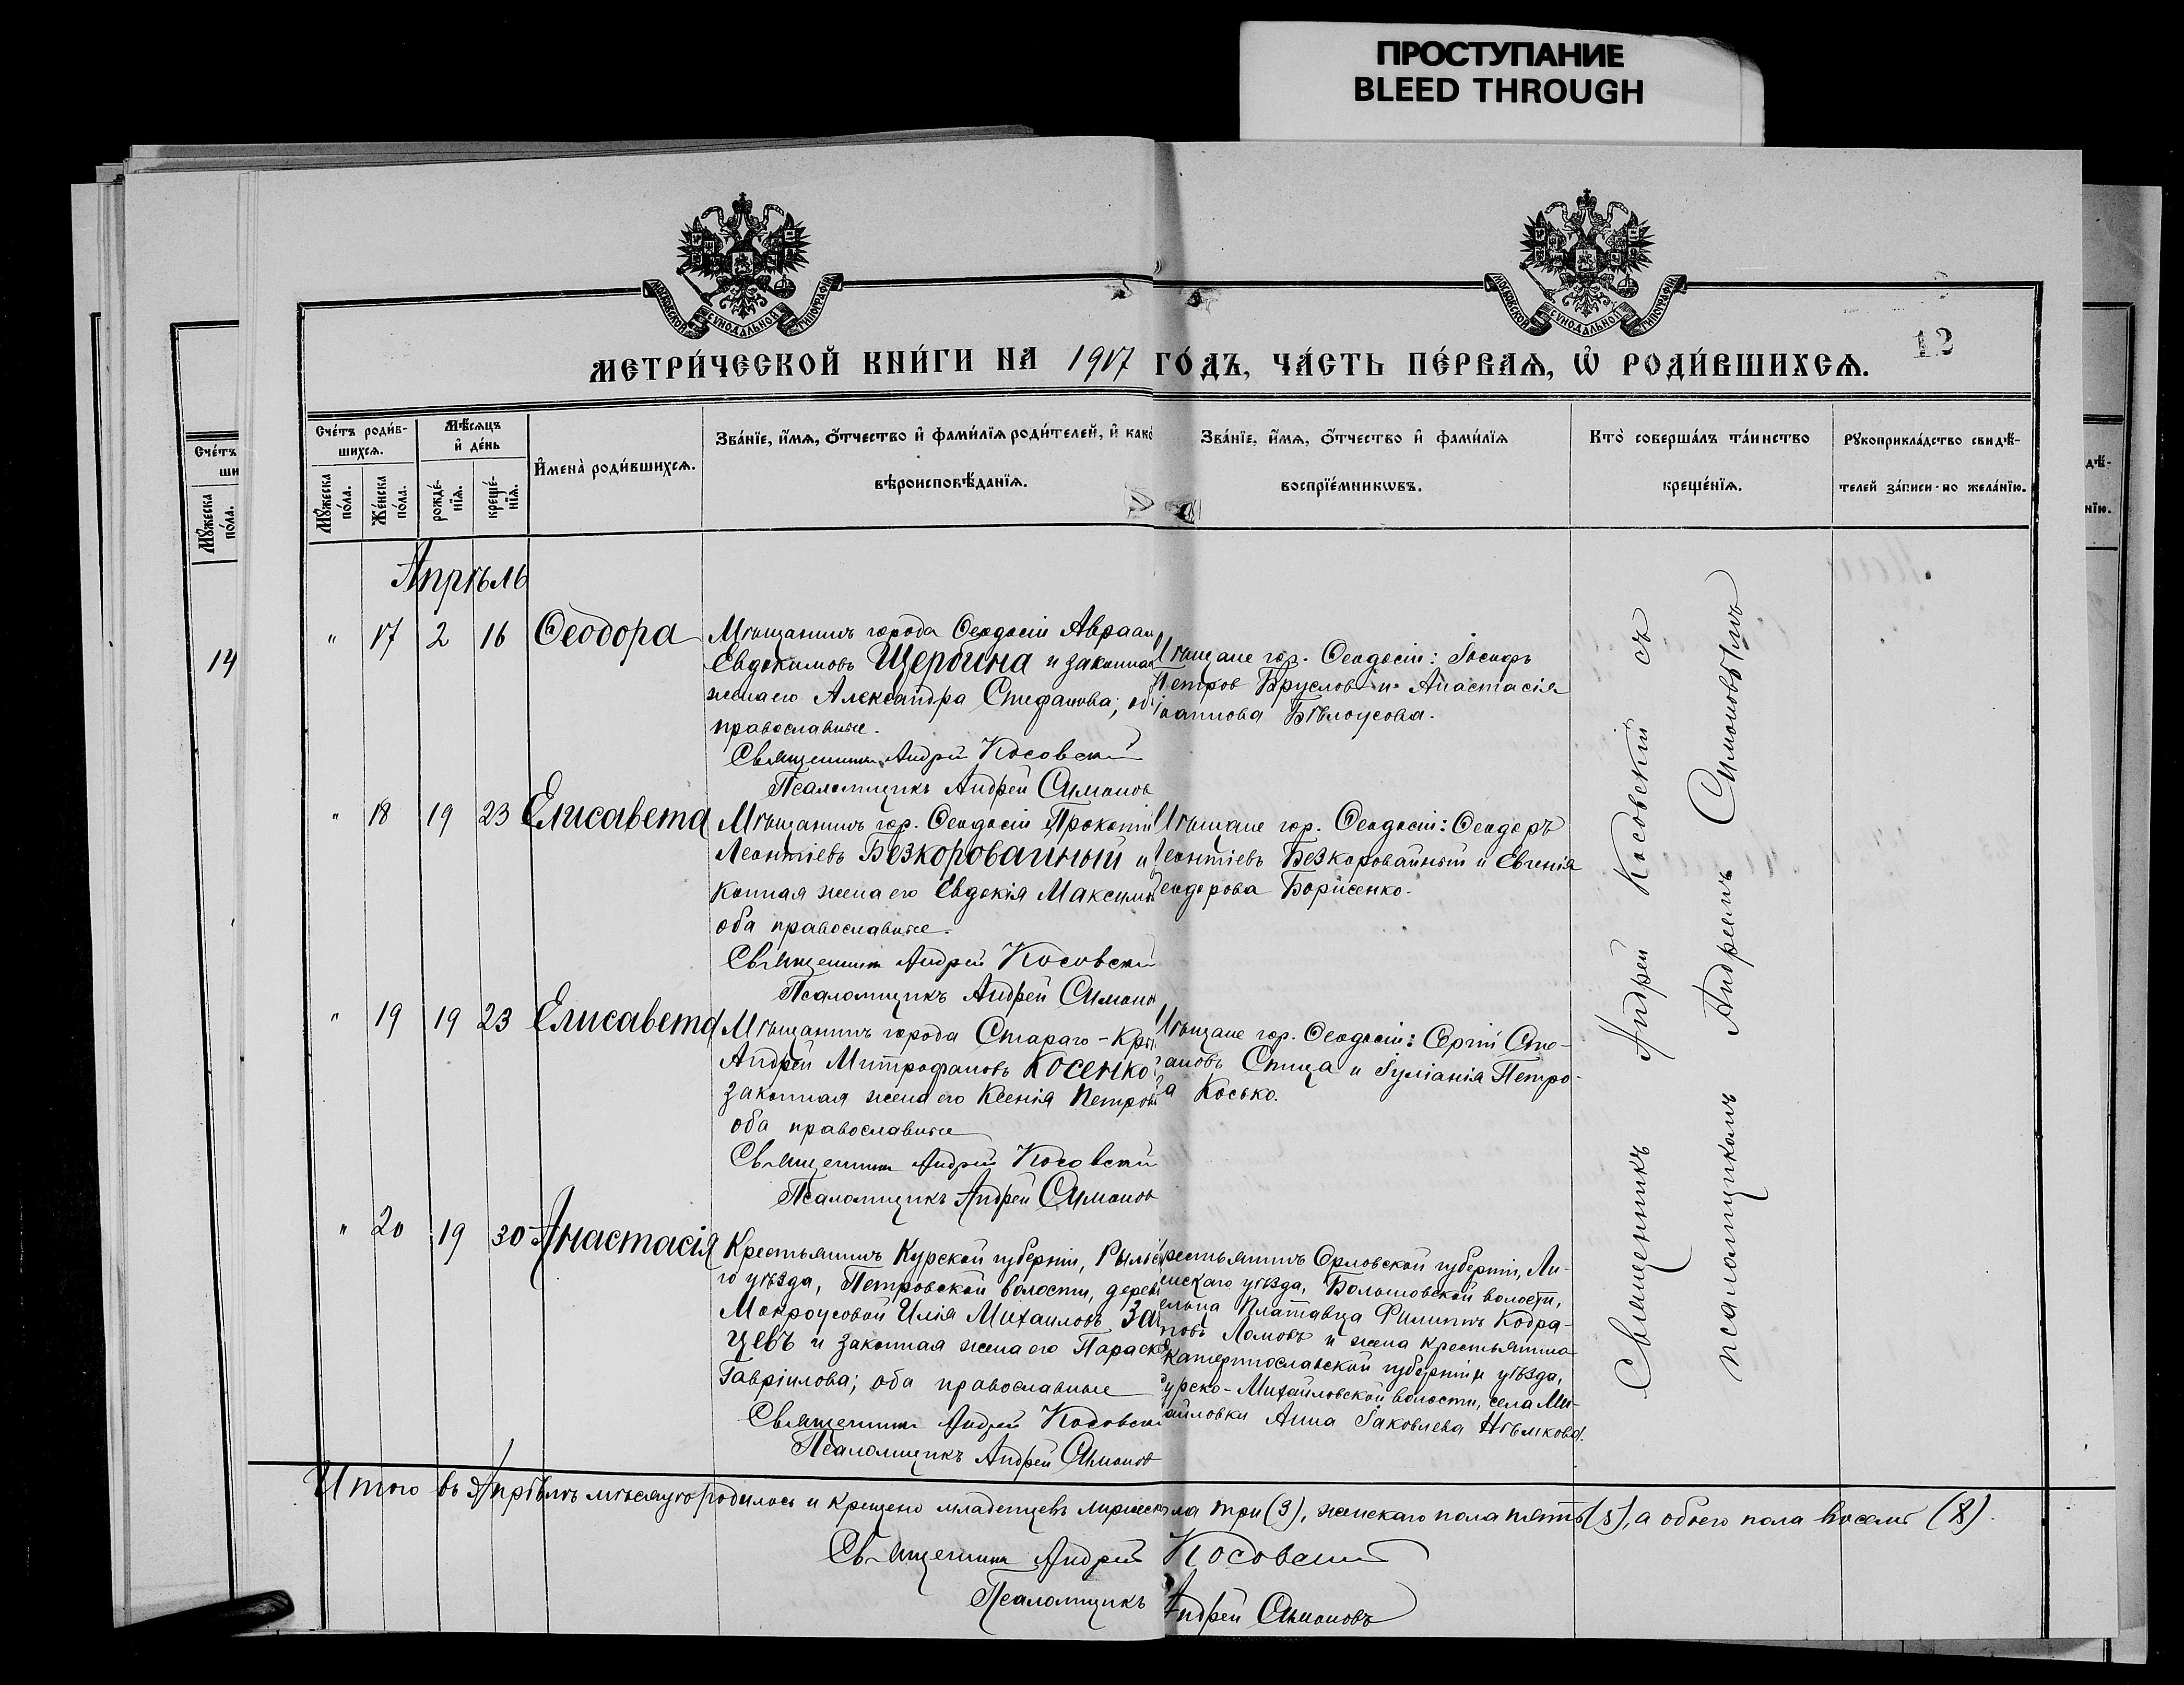 ПРОСТУПАНИЕ
BLEED THROUGH
МОСКОВСКОЙ СѴНОДАЛЬНОЙ ТИПОГРАФІИ
МОСКОВСКОЙ СѴНОДАЛЬНОЙ ТИПОГРАФІИ
12
МЕТРИ́ЧЕСКОЙ КНИ́ГИ НА 1917 ГО́ДЪ, ЧА́СТЬ ПЕ́РВАѦ, Ѡ РОДИ́ВШИХСѦ.
Сче́тъ роди́в-
шихсѧ.
Мꙋ́жеска по́ла.
Же́нска по́ла.
Мѣ́сѧцъ и де́нь
рожде́-нїѧ.
креще́-нїѧ.
Имена̀ роди́вшихсѧ.
Зва́нїе, и́мѧ, о́тчество и фами́лїѧ роди́телей, и како
вѣроисповѣ́данїѧ.
Зва́нїе, и́мѧ, о́тчество и фами́лїѧ
воспрїе́мникѡвъ.
Кто̀ соверша́лъ та́инство
креще́нїѧ.
Рꙋкоприкла́дство свидѣ́-
телей за́писи по жела́нїю.
Апрѣль
" 17 2 16 Ѳеодора
Мѣщанинъ города Ѳеодосіи Авраам
Евдокимовъ Щербина и законная
жена его Александра Стефанова; об
православные.
Священникъ Андрей Косовский
Псаломщикъ Андрей Симонов
Мѣщане гор. Ѳеодосіи: Іосифъ
Петров Бруслов и Анастасія
Іоаннова Бѣлоусова.
" 18 19 23 Елисавета
Мѣщанинъ гор. Ѳеодосіи Прокопій
Леонтіевъ Безкоровайный и
конная жена его Евдокія Максимо
оба православные.
Священник Андрей Косовский
Псаломщикъ Андрей Симонов
Мѣщане гор. Ѳеодосіи: Ѳеодоръ
Леонтіевъ Безкоровайный и Евгенія
Ѳеодорова Борисенко.
" 19 19 23 Елисавета
Мѣщанинъ города Стараго-Кры
Андрей Митрофановъ Косенко
законная жена его Ксенія Петров
оба православные
Священник Андрей Косовский
Псаломщикъ Андрей Симонов
Мѣщане гор. Ѳеодосіи: Сергій Сте-
ановъ Спица и Іуліанія Петро-
а Косько.
" 20 19 30 Анастасія
Крестьянинъ Курской губерніи, Рыльс
го уѣзда, Петровской волости, дерев
Мокроусовой Илія Михаиловъ За
цевъ и законная жена его Параске
Гавріилова; оба православные
Священник Андрей Косовский
Псаломщикъ Андрей Симонов
рестьянинъ Орловской губерніи, Ли-
енскаго уѣзда, волости,
Филиппъ Кодра-
товъ Ломовъ и жена крестьянина
Екатеринославской губерніи уѣзда,
-Михайловской волости, села Ми-
айловки Анна Іаковлева Нѣмкова.
Священникъ Андрей Косовский съ
псаломщикомъ Андреемъ Симоновымъ
Итого въ Апрѣлѣ мѣсяцѣ родилось и крещено младенцевъ мужеск ла три (3), женскаго пола пять (5), а обоего пола восемь (8).
Священник Андрей Косовский
Псаломщикъ Андрей Симоновъ
14